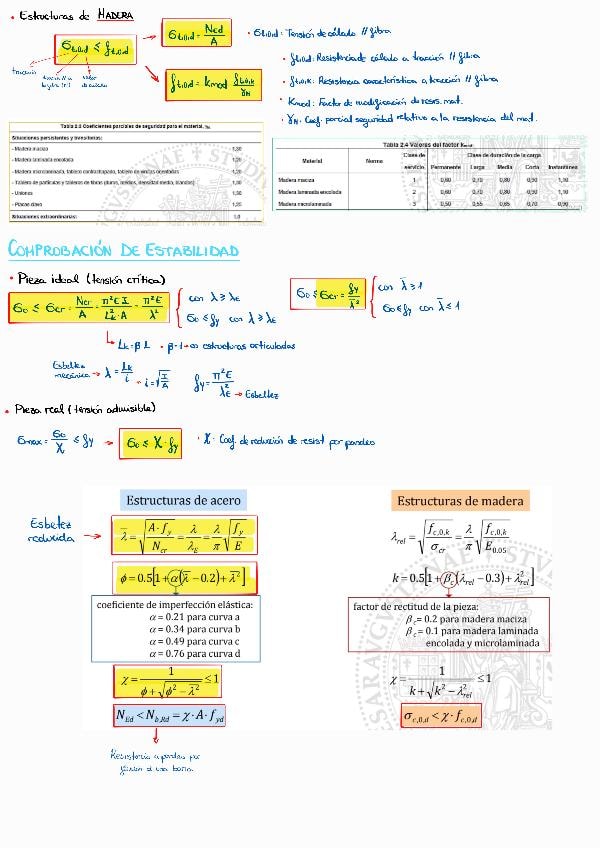 • Estructuras de MADERA
σt,0,d ≤ ft,0,d
σt,0,d = Ncd / A
ft,0,d = Kmod ft,0,k / γM
• σt,0,d: Tensión de cálculo // fibra
• ft,0,d: Resistencia de cálculo a tracción // fibra
• ft,0,k: Resistencia característica a tracción // fibra
• Kmod: Factor de modificación de resis. mat.
• γM: Coef. parcial seguridad relativo a la resistencia del mat.
Tabla 2.3 Coeficientes parciales de seguridad para el material, γM
Situaciones persistentes y transitorias:
- Madera maciza 1,30
- Madera laminada encolada 1,25
- Madera microlaminada, tablero contrachapado, tablero de virutas orientadas 1,20
- Tablero de partículas y tableros de fibras (duros, medios, densidad media, blandos) 1,30
- Uniones 1,30
- Placas clavo 1,25
Situaciones extraordinarias: 1,0
Tabla 2.4 Valores del factor Kmod
Material Norma Clase de servicio Clase de duración de la carga
Permanente Larga Media Corta Instantánea
Madera maciza 1 0,60 0,70 0,80 0,90 1,10
Madera laminada encolada 2 0,60 0,70 0,80 0,90 1,10
Madera microlaminada 3 0,50 0,55 0,65 0,70 0,90
COMPROBACIÓN DE ESTABILIDAD
• Pieza ideal (tensión crítica)
σ0 ≤ σcr = Ncr / A = π²EI / Lk²·A = π²E / λ²
con λ ≥ λE
σ0 ≤ fy con λ ≥ λE
σ0 ≤ σcr = fy / λ̄²
con λ̄ ≥ 1
σ0 ≤ fy con λ̄ ≤ 1
Lk = β·L • β=1 → en estructuras articuladas
Esbeltez mecánica → λ = Lk / i
→ i = √(I / A)
fy = π²E / λE² → Esbeltez
• Pieza real (tensión admisible)
σmax = σ0 / χ ≤ fy → σ0 ≤ χ·fy
• χ: Coef. de reducción de resist por pandeo
Estructuras de acero
Esbeltez reducida →
λ̄ = √(A·fy / Ncr) = λ / λE = λ / π √(fy / E)
ϕ = 0.5[1+α(λ̄ −0.2)+λ̄²]
coeficiente de imperfección elástica:
α = 0.21 para curva a
α = 0.34 para curva b
α = 0.49 para curva c
α = 0.76 para curva d
χ = 1 / (ϕ+√(ϕ² − λ̄²)) ≤ 1
NEd < Nb,Rd = χ·A·fyd
Resistencia a pandeo por
Estructuras de madera
λrel = √(fc,0,k / σcr) = λ / π √(fc,0,k / E0.05)
k = 0.5[1+βc(λrel −0.3)+λ²rel]
factor de rectitud de la pieza:
βc= 0.2 para madera maciza
βc= 0.1 para madera laminada
encolada y microlaminada
χ = 1 / (k+√(k² − λ²rel)) ≤ 1
σc,0,d < χ·fc,0,d